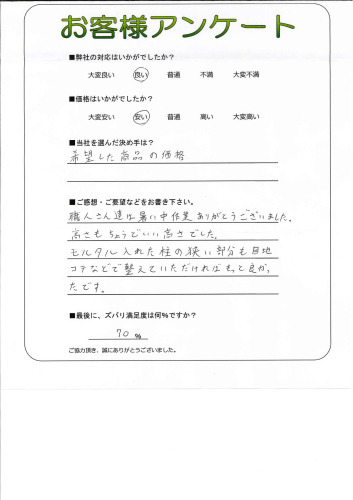 お客様アンケート
■弊社の対応はいかがでしたか?
大変良い 良い 普通 不満 大変不満
■価格はいかがでしたか?
大変安い 安い 普通 高い 大変高い
■当社を選んだ決め手は?
希望した商品の価格
■ご感想・ご要望などをお書き下さい。
職人さん達は暑い中作業ありがとうございました。
高さもちょうどいい高さでした。
モルタル入れた柱の狭い部分も目地
コテなどで整えていただければもっと良かっ
たです。
■最後に、ズバリ満足度は何%ですか?
70 %
ご協力頂き、誠にありがとうございました。